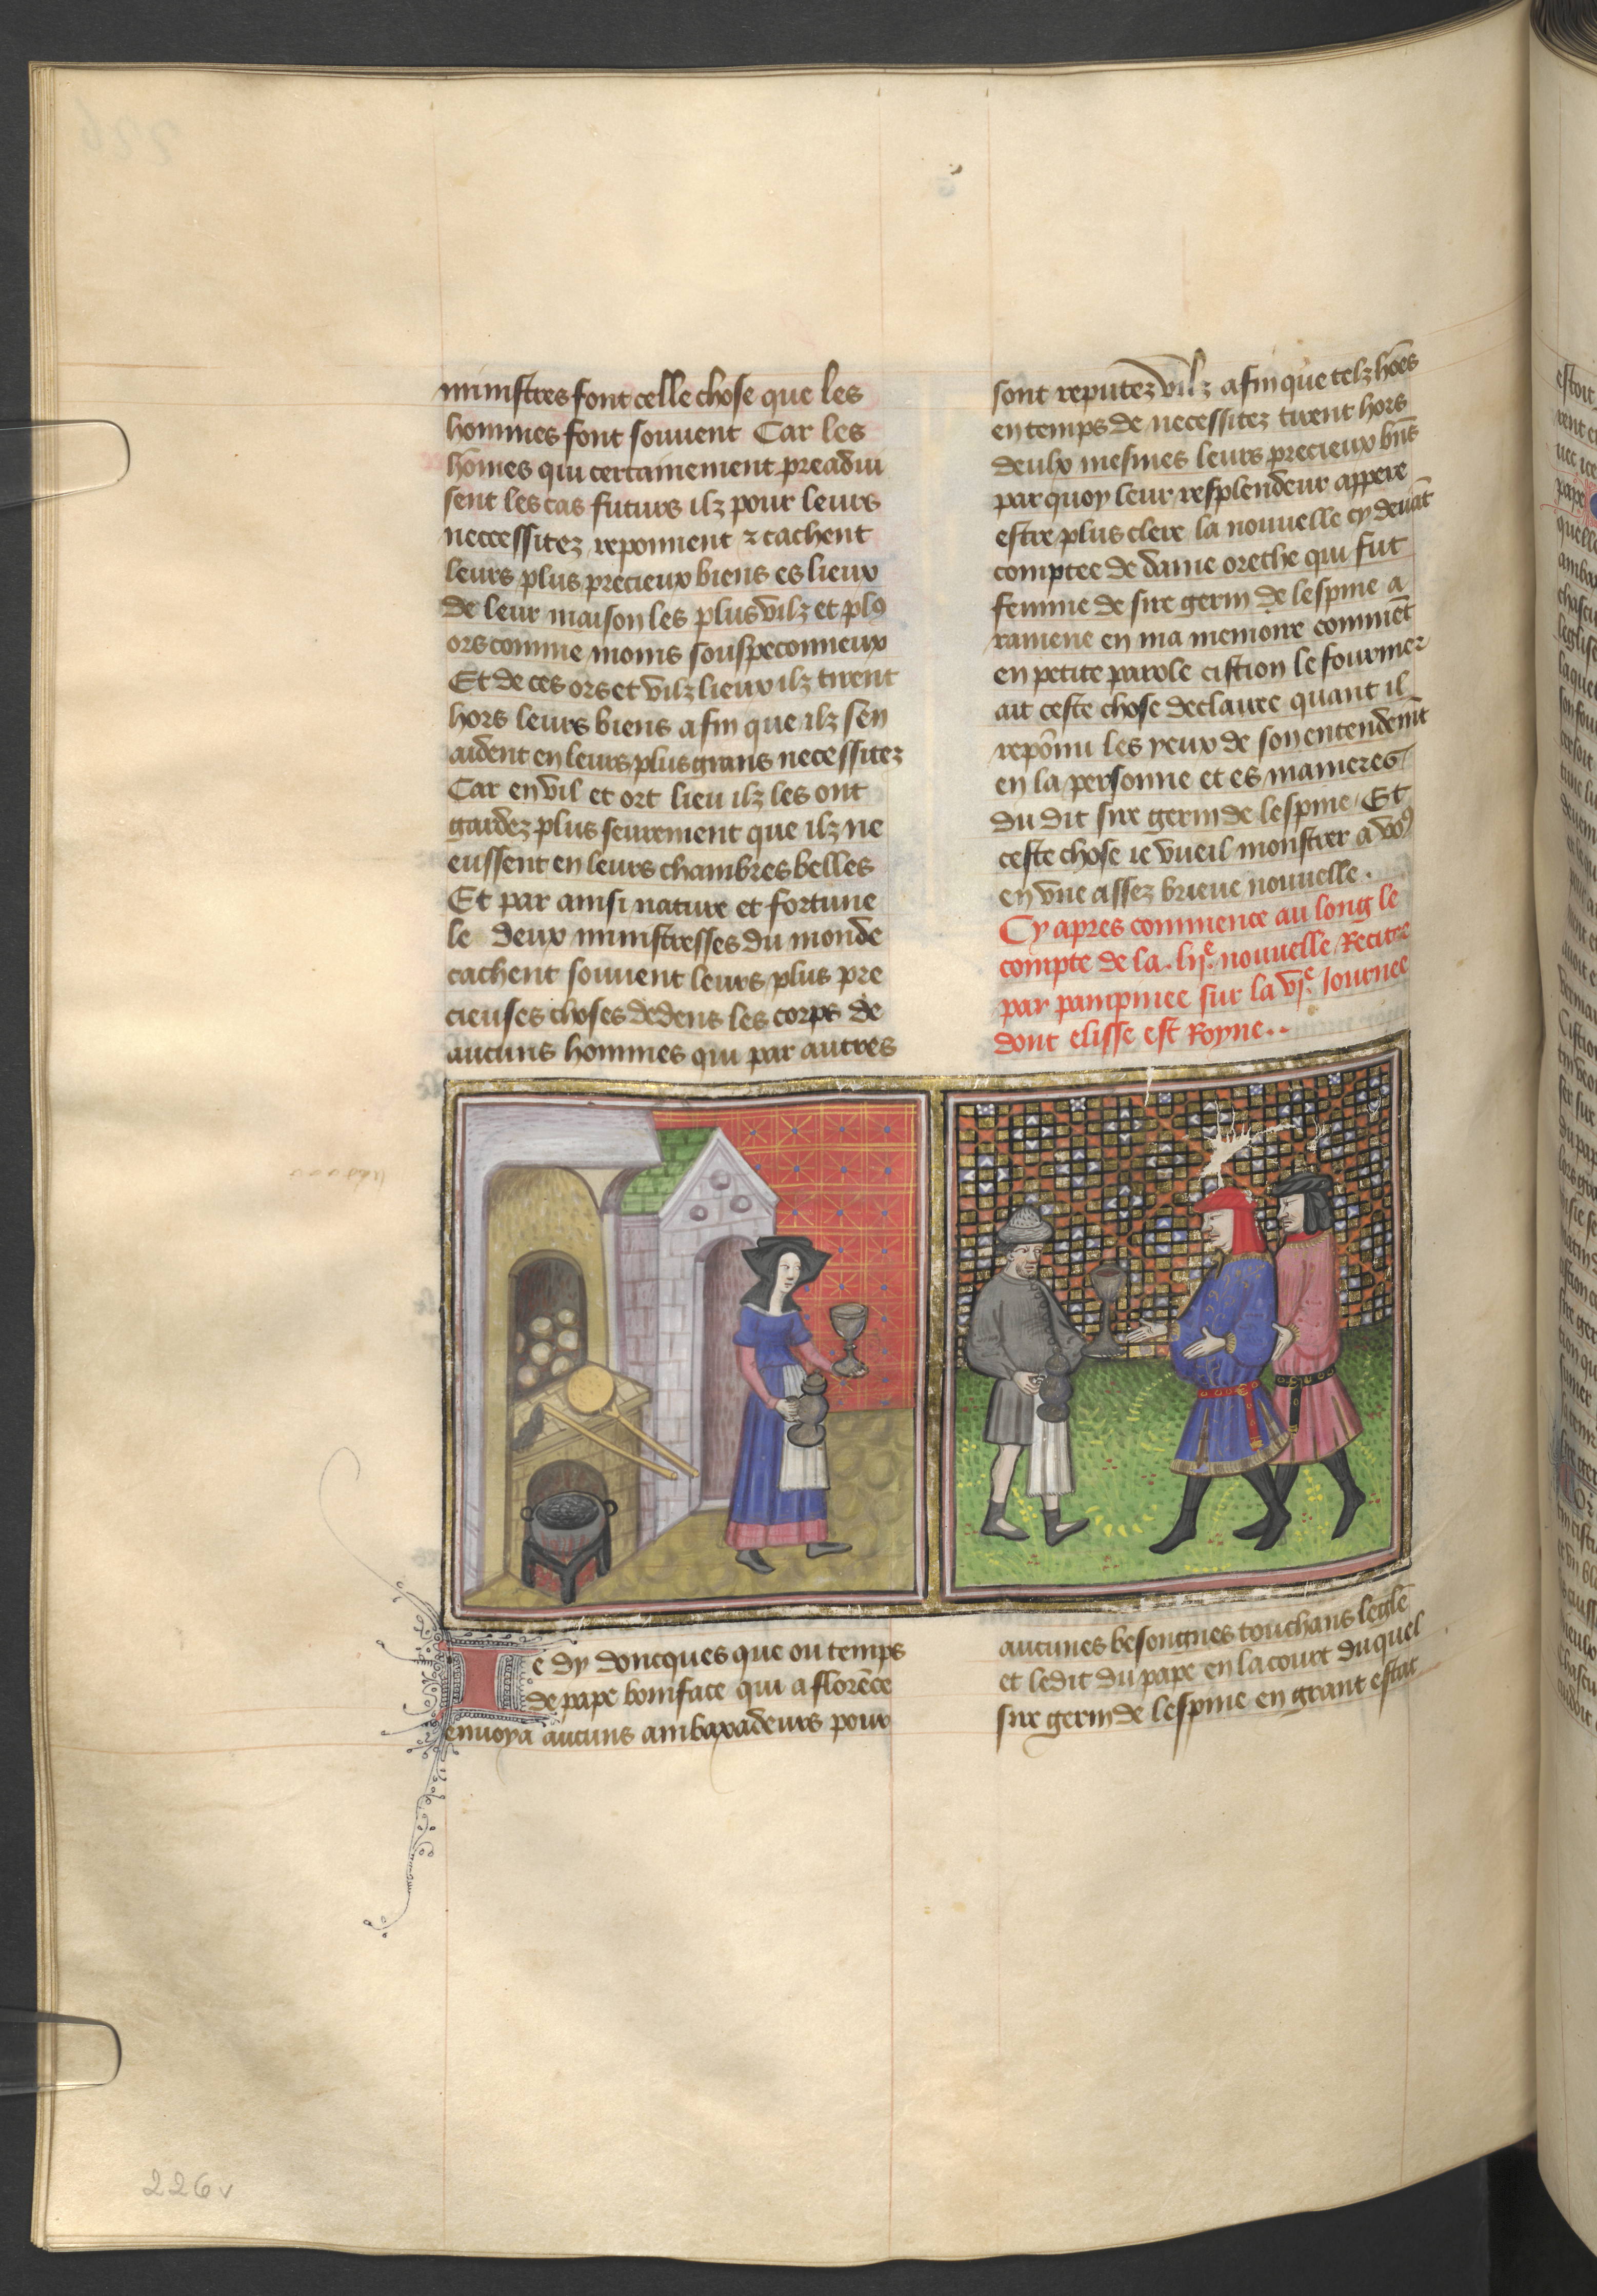 ministres font celle chose que les
hommes font souuent Car les
hōmes qui certainement preadui
sent les cas futurs ilz pour leurs
neccessitez reponnent ⁊ cachent
leurs plus precieux biens es lieux
de leur maison les plus vilz et plꝯ
ors comme moins souspeconneux
Et de ces ors et vilz lieux ilz tirent
hors leurs biens afin que ilz sen
aident en leurs plus grans necessitez
Car en vil et ort lieu ilz les ont
gardez plus seurement que ilz ne
eussent en leurs chambres belles
Et par ainsi nature et fortune
le deux ministresses du monde
cachent souuent leurs plus pre
cieuses choses dedens les corps de
aucuns hommes qui par autres
sont reputez vilz afin que telz hōes
en temps de necessitez tirent hors
deulx mesmes leurs precieux bn̄s
par quoy leur resplendeur appere
estre plus clere la nouuelle cy deuāt
comptee de dame orethe qui fut
femme de sire germ de lespine a
ramene en ma memoire commēt
en petite parole cistion le fournier
ait ceste chose declaree quant il
repōnu les yeux de son entendem̄t
en la personne et es manieres
du dit sire germ de lespine / Et
ceste chose ie vueil monstrer a voꝯ
en vne assez brieue nouuelle.
Cy apres commence au long le
compte de la .lij.e nouuelle Recitee
par pampinee sur la vj.e Iournee
dont elisse est Royne..
Ie dy doncques que ou temps
de pape boniface qui a florēce
enuoya aucuns ambaxadeurs pour
aucunes besongnes touchans leglē
et ledit du pape en la court duquel
sire germ de lespine en grant estat
226v